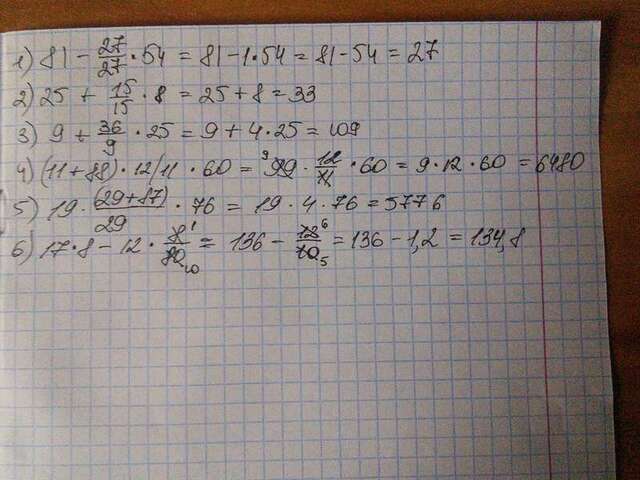 1) 81 - 27/27 · 54 = 81 - 1 · 54 = 81 - 54 = 27
2) 25 + 15/15 · 8 = 25 + 8 = 33
3) 9 + 36/9 · 25 = 9 + 4 · 25 = 109
4) (11 + 88) · 12/11 · 60 = 99 9 · 12/11 · 60 = 9 · 12 · 60 = 6480
5) 19 · (29+87)/29 · 76 = 19 · 4 · 76 = 5776
6) 17 · 8 - 12 · 8 1/80 10 = 136 - 12 6/10 5 = 136 - 1,2 = 134,8